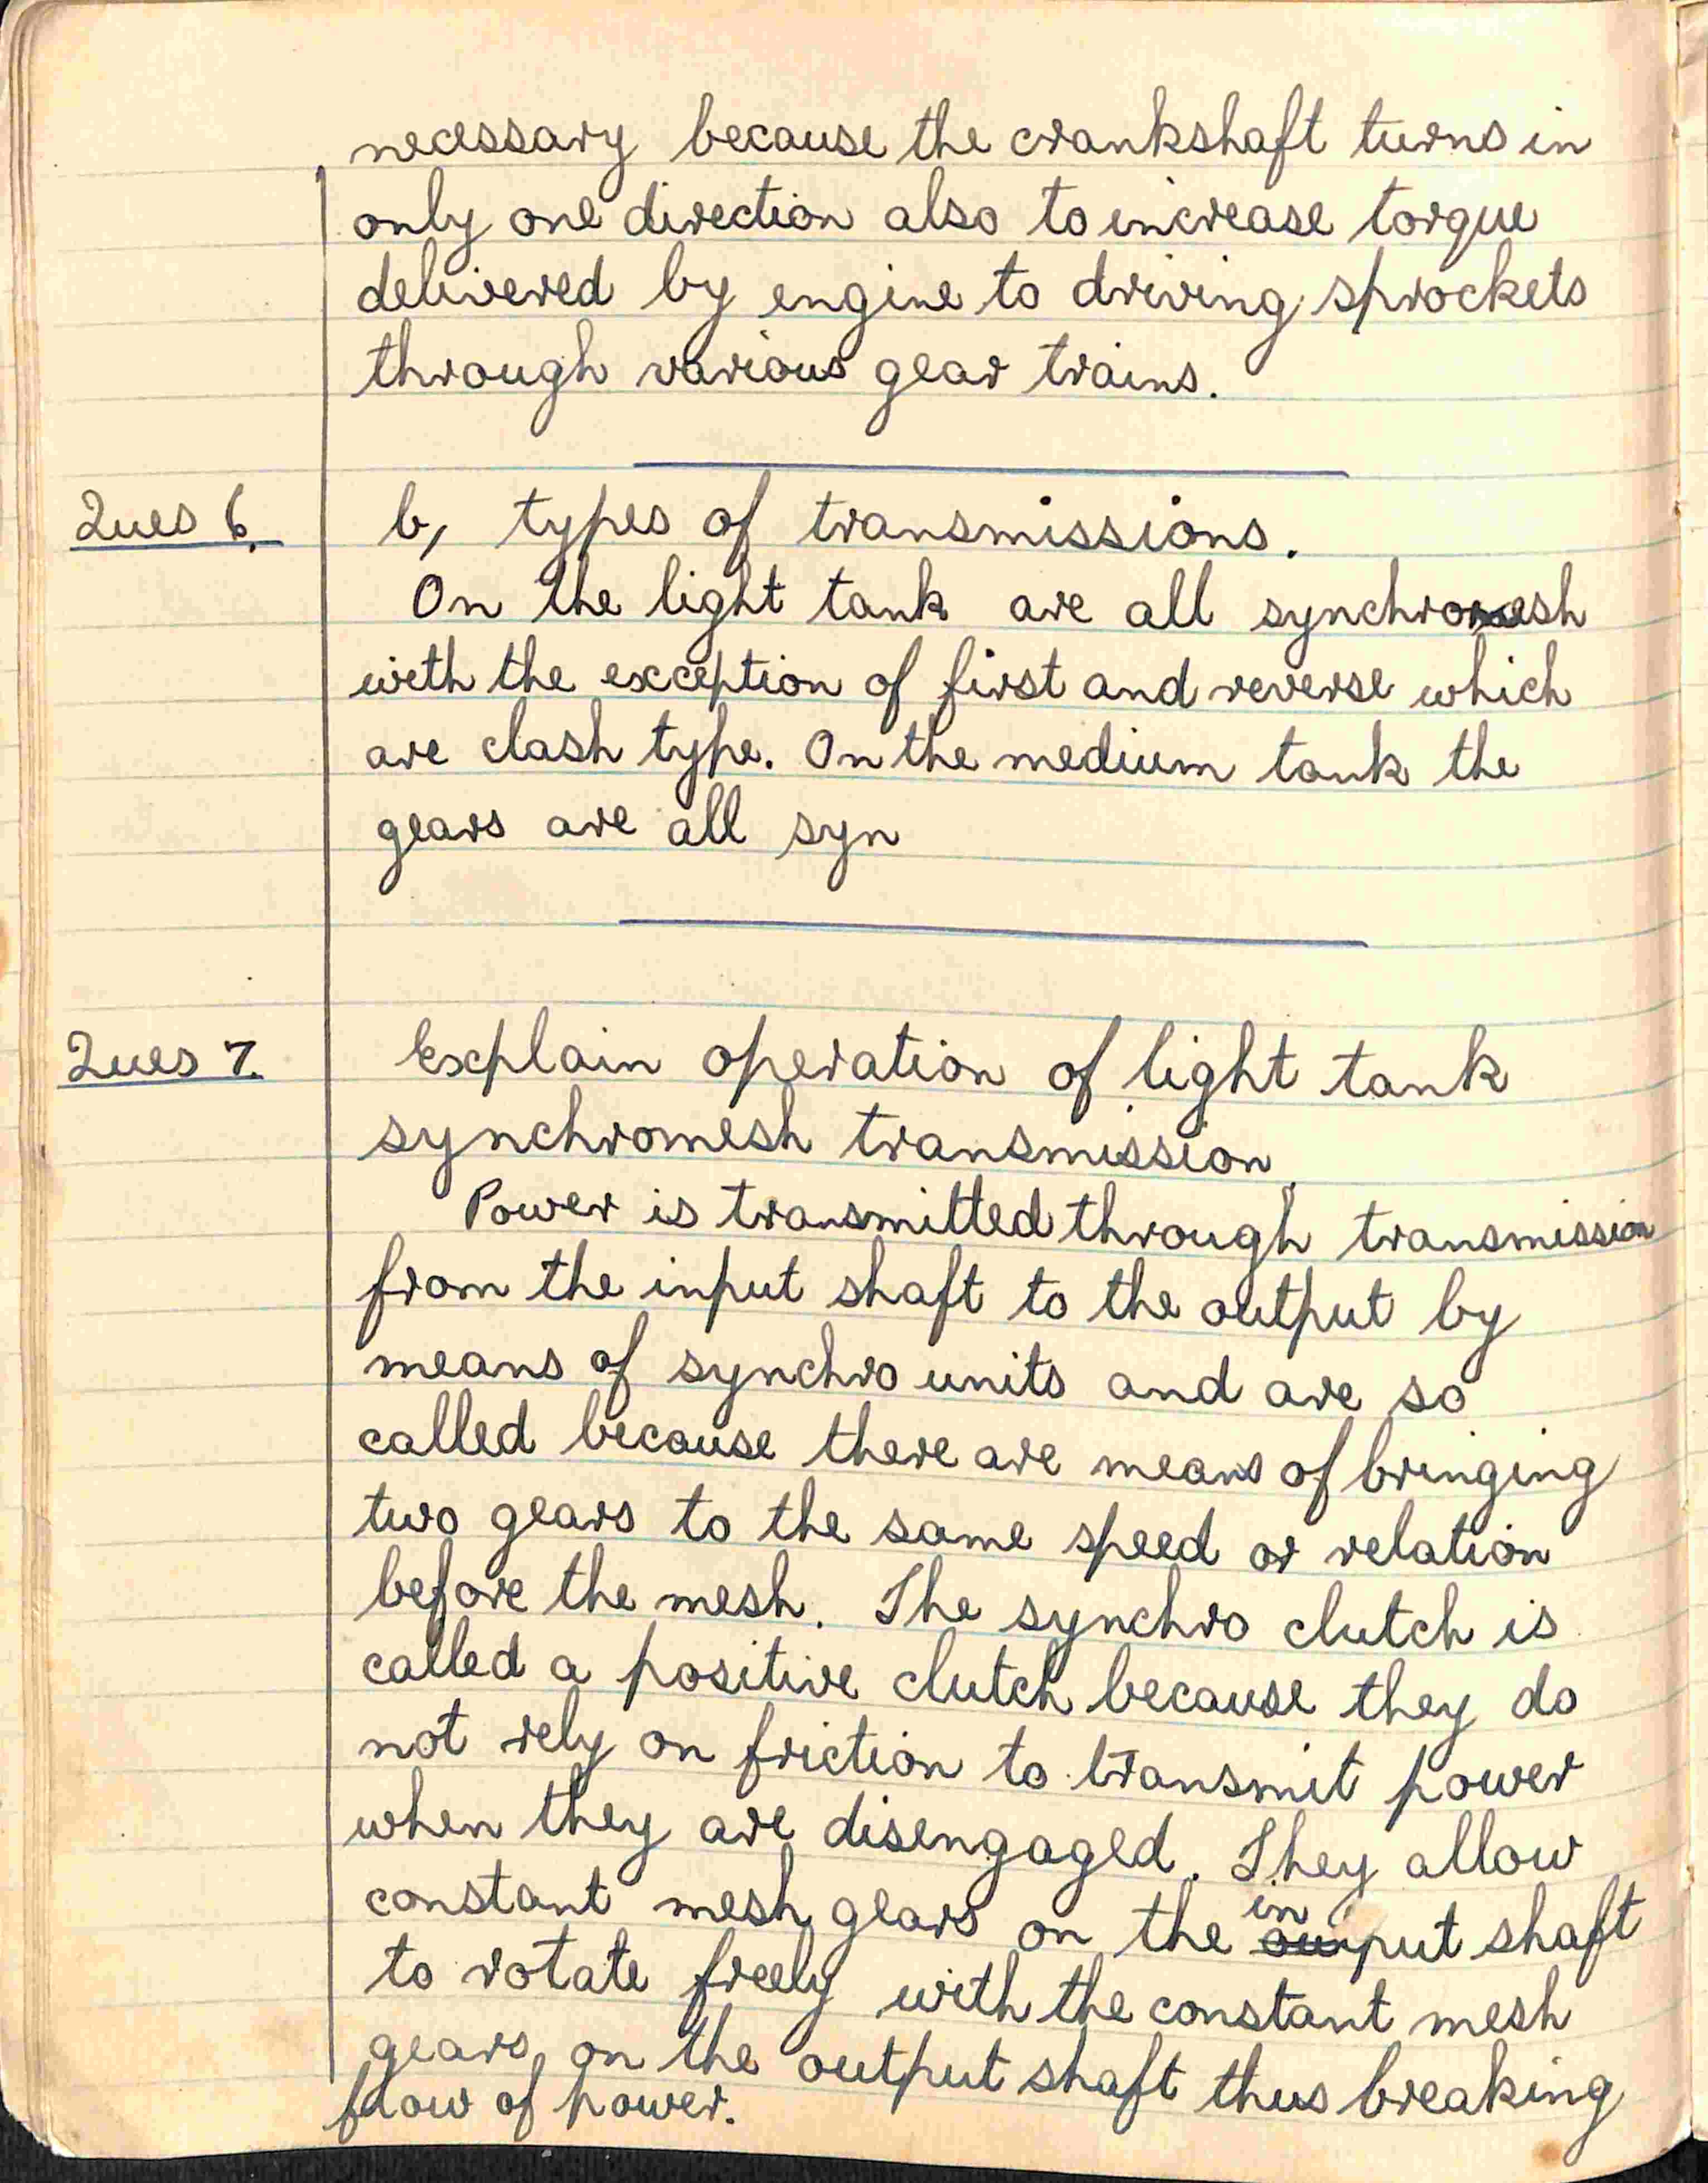 necessary because the crankshaft turns in
only one direction also to increase torque
delivered by engine to driving sprockets
through various gear trains.
Ques 6. b, types of transmissions.
On the light tank are all synchromesh
with the exception of first and reverse which
are clash type. On the medium tank the
gears are all syn
Ques 7. Explain operation of light tank
synchromesh transmission
Power is transmitted through transmission
from the input shaft to the output by
means of synchro units and are so
called because there are means of bringing
two gears to the same speed or relation
before the mesh. The synchro clutch is
called a positive clutch because they do
not rely on friction to transmit power
when they are disengaged. They allow
constant mesh gears on the input shaft
to rotate freely with the constant mesh
gears on the output shaft thus breaking
flow of power.